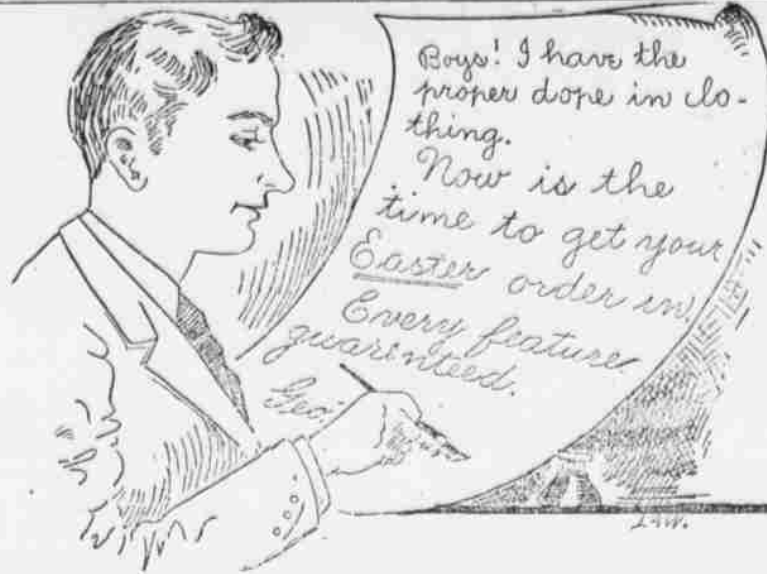 Boys! I have the
proper dope in clo-
thing.
Now is the
time to get your
Easter order in
Every feature
guarinteed.
Geo.